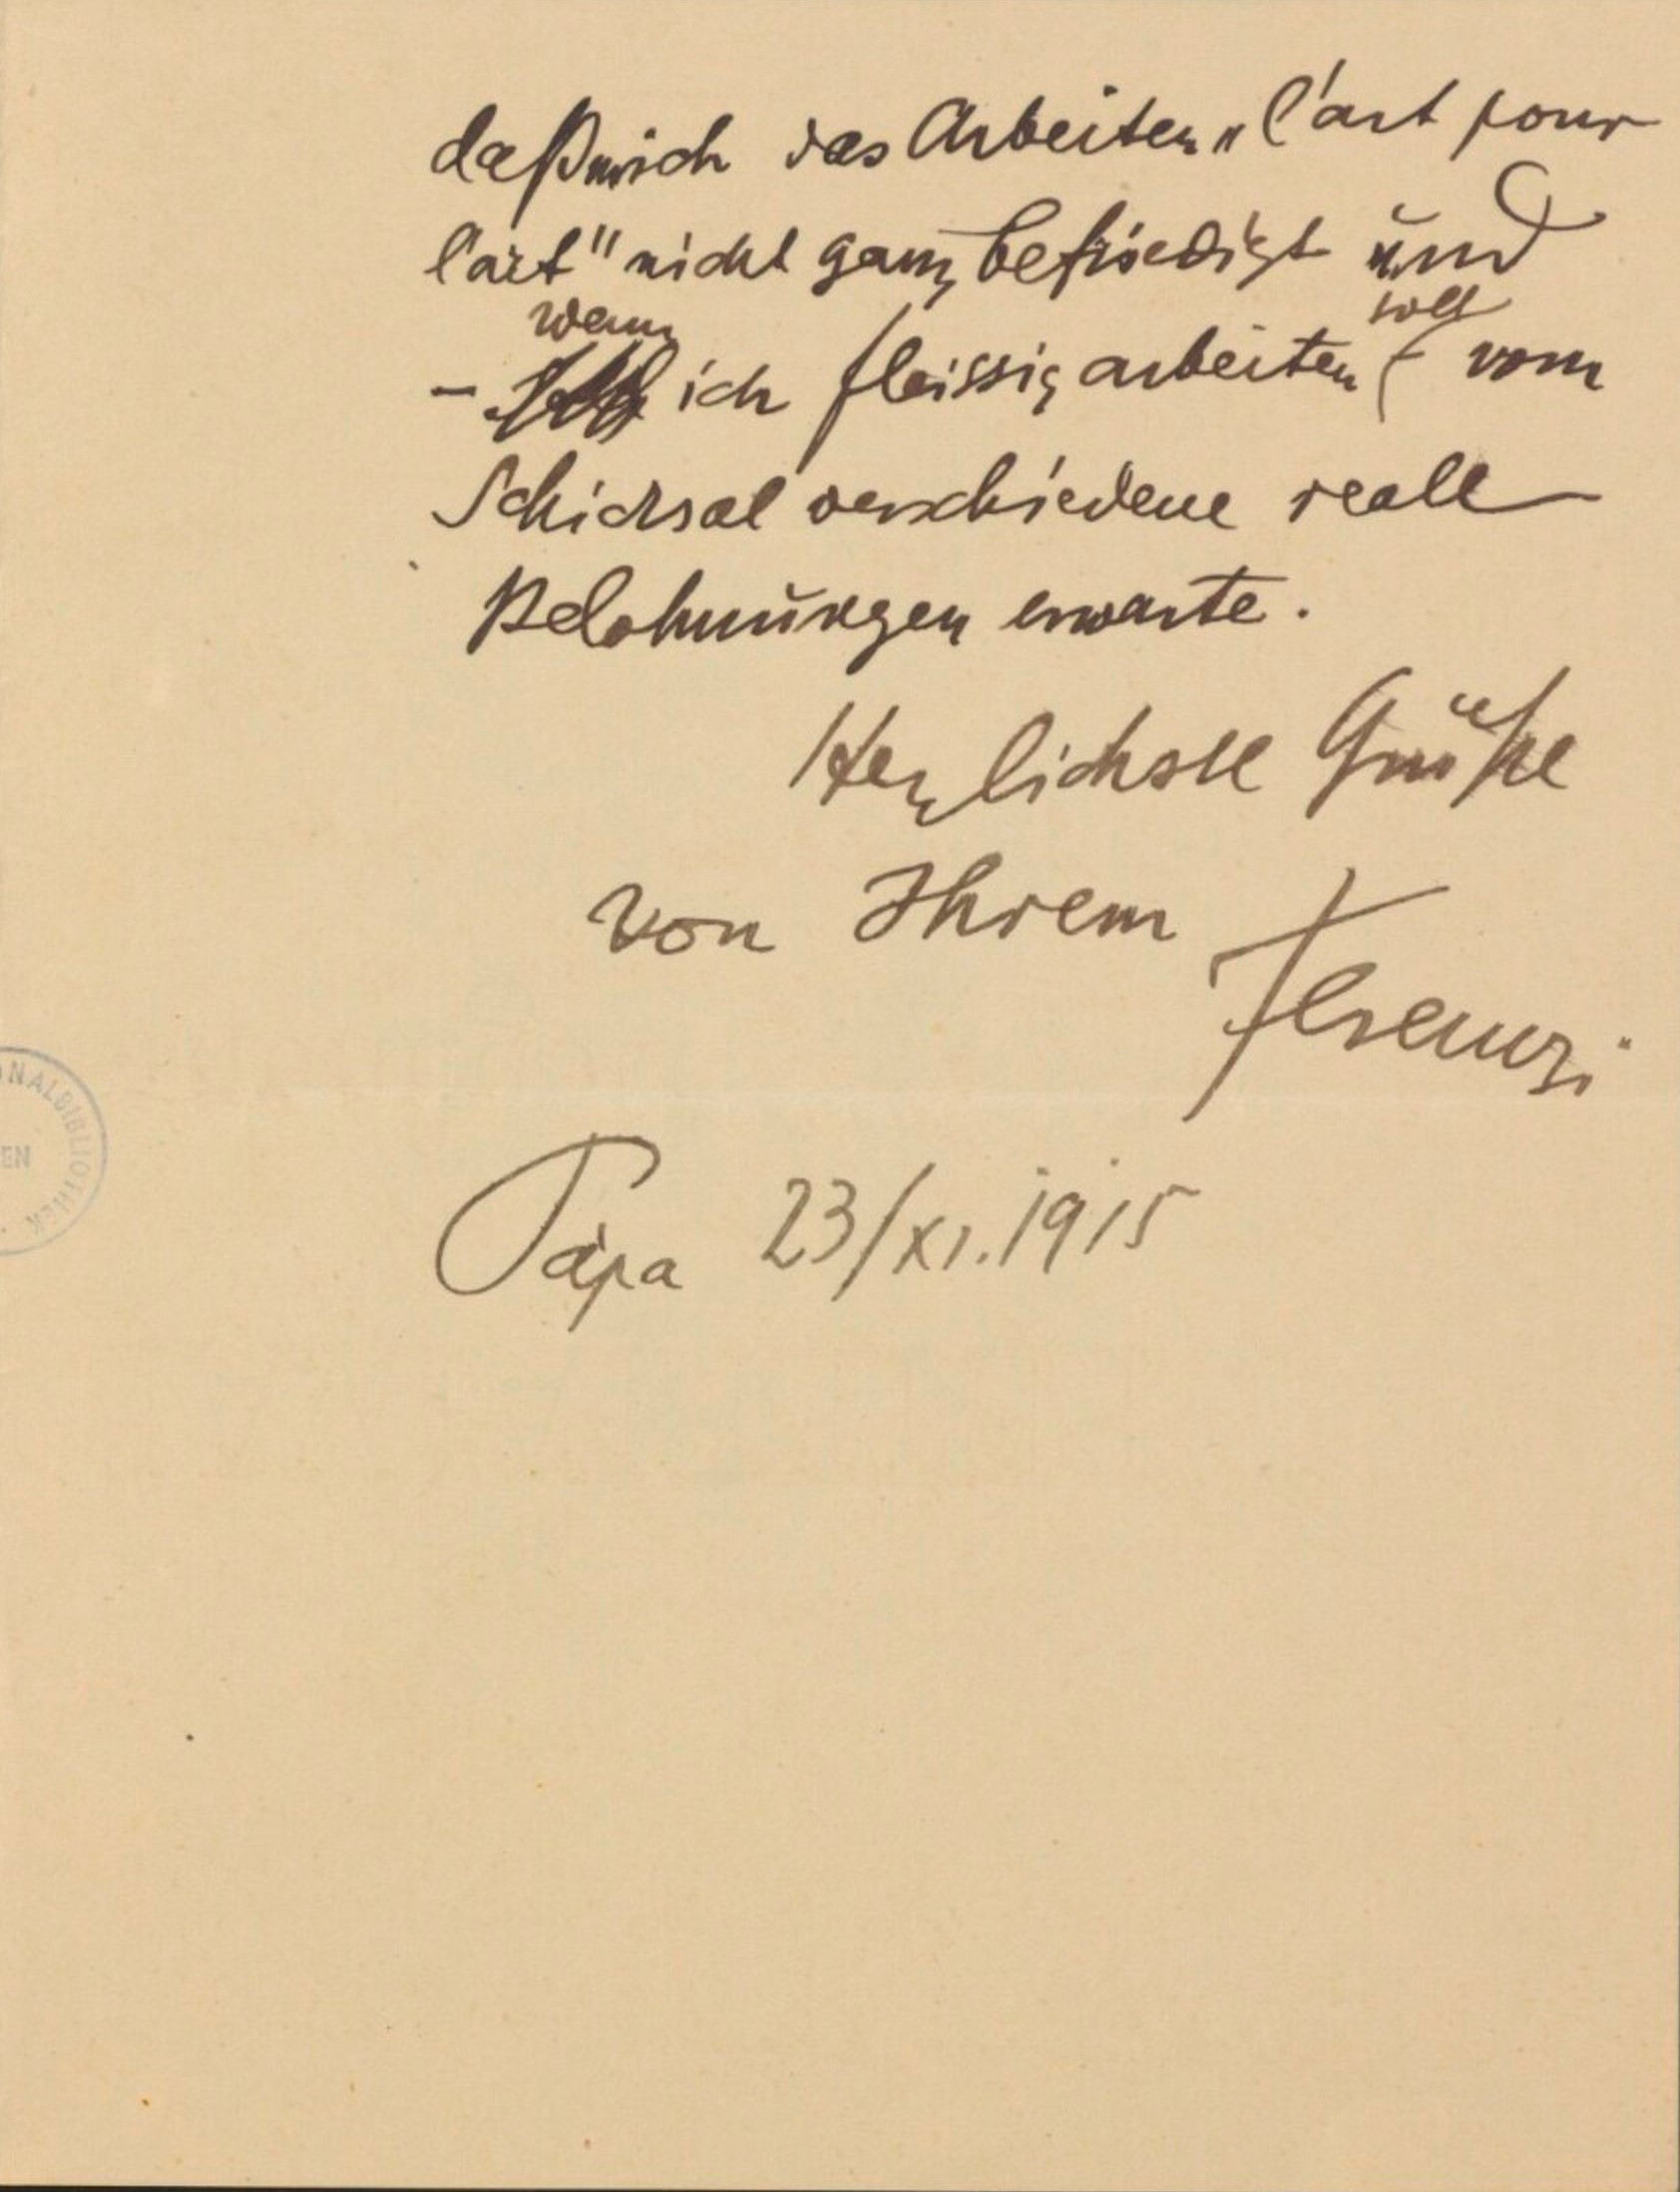 daß mich das Arbeiten „l'art pour
l'art" nicht ganz befriedigt und
wenn soll
– ich fleissig arbeiten – vom
Schicksal verschiedene reale
Belohnungen erwarte.
Herzlichste Grüße
von Ihrem
Ferenczi
NALBIBLIOTHEK
EN
Pápa 23/XI. 1915